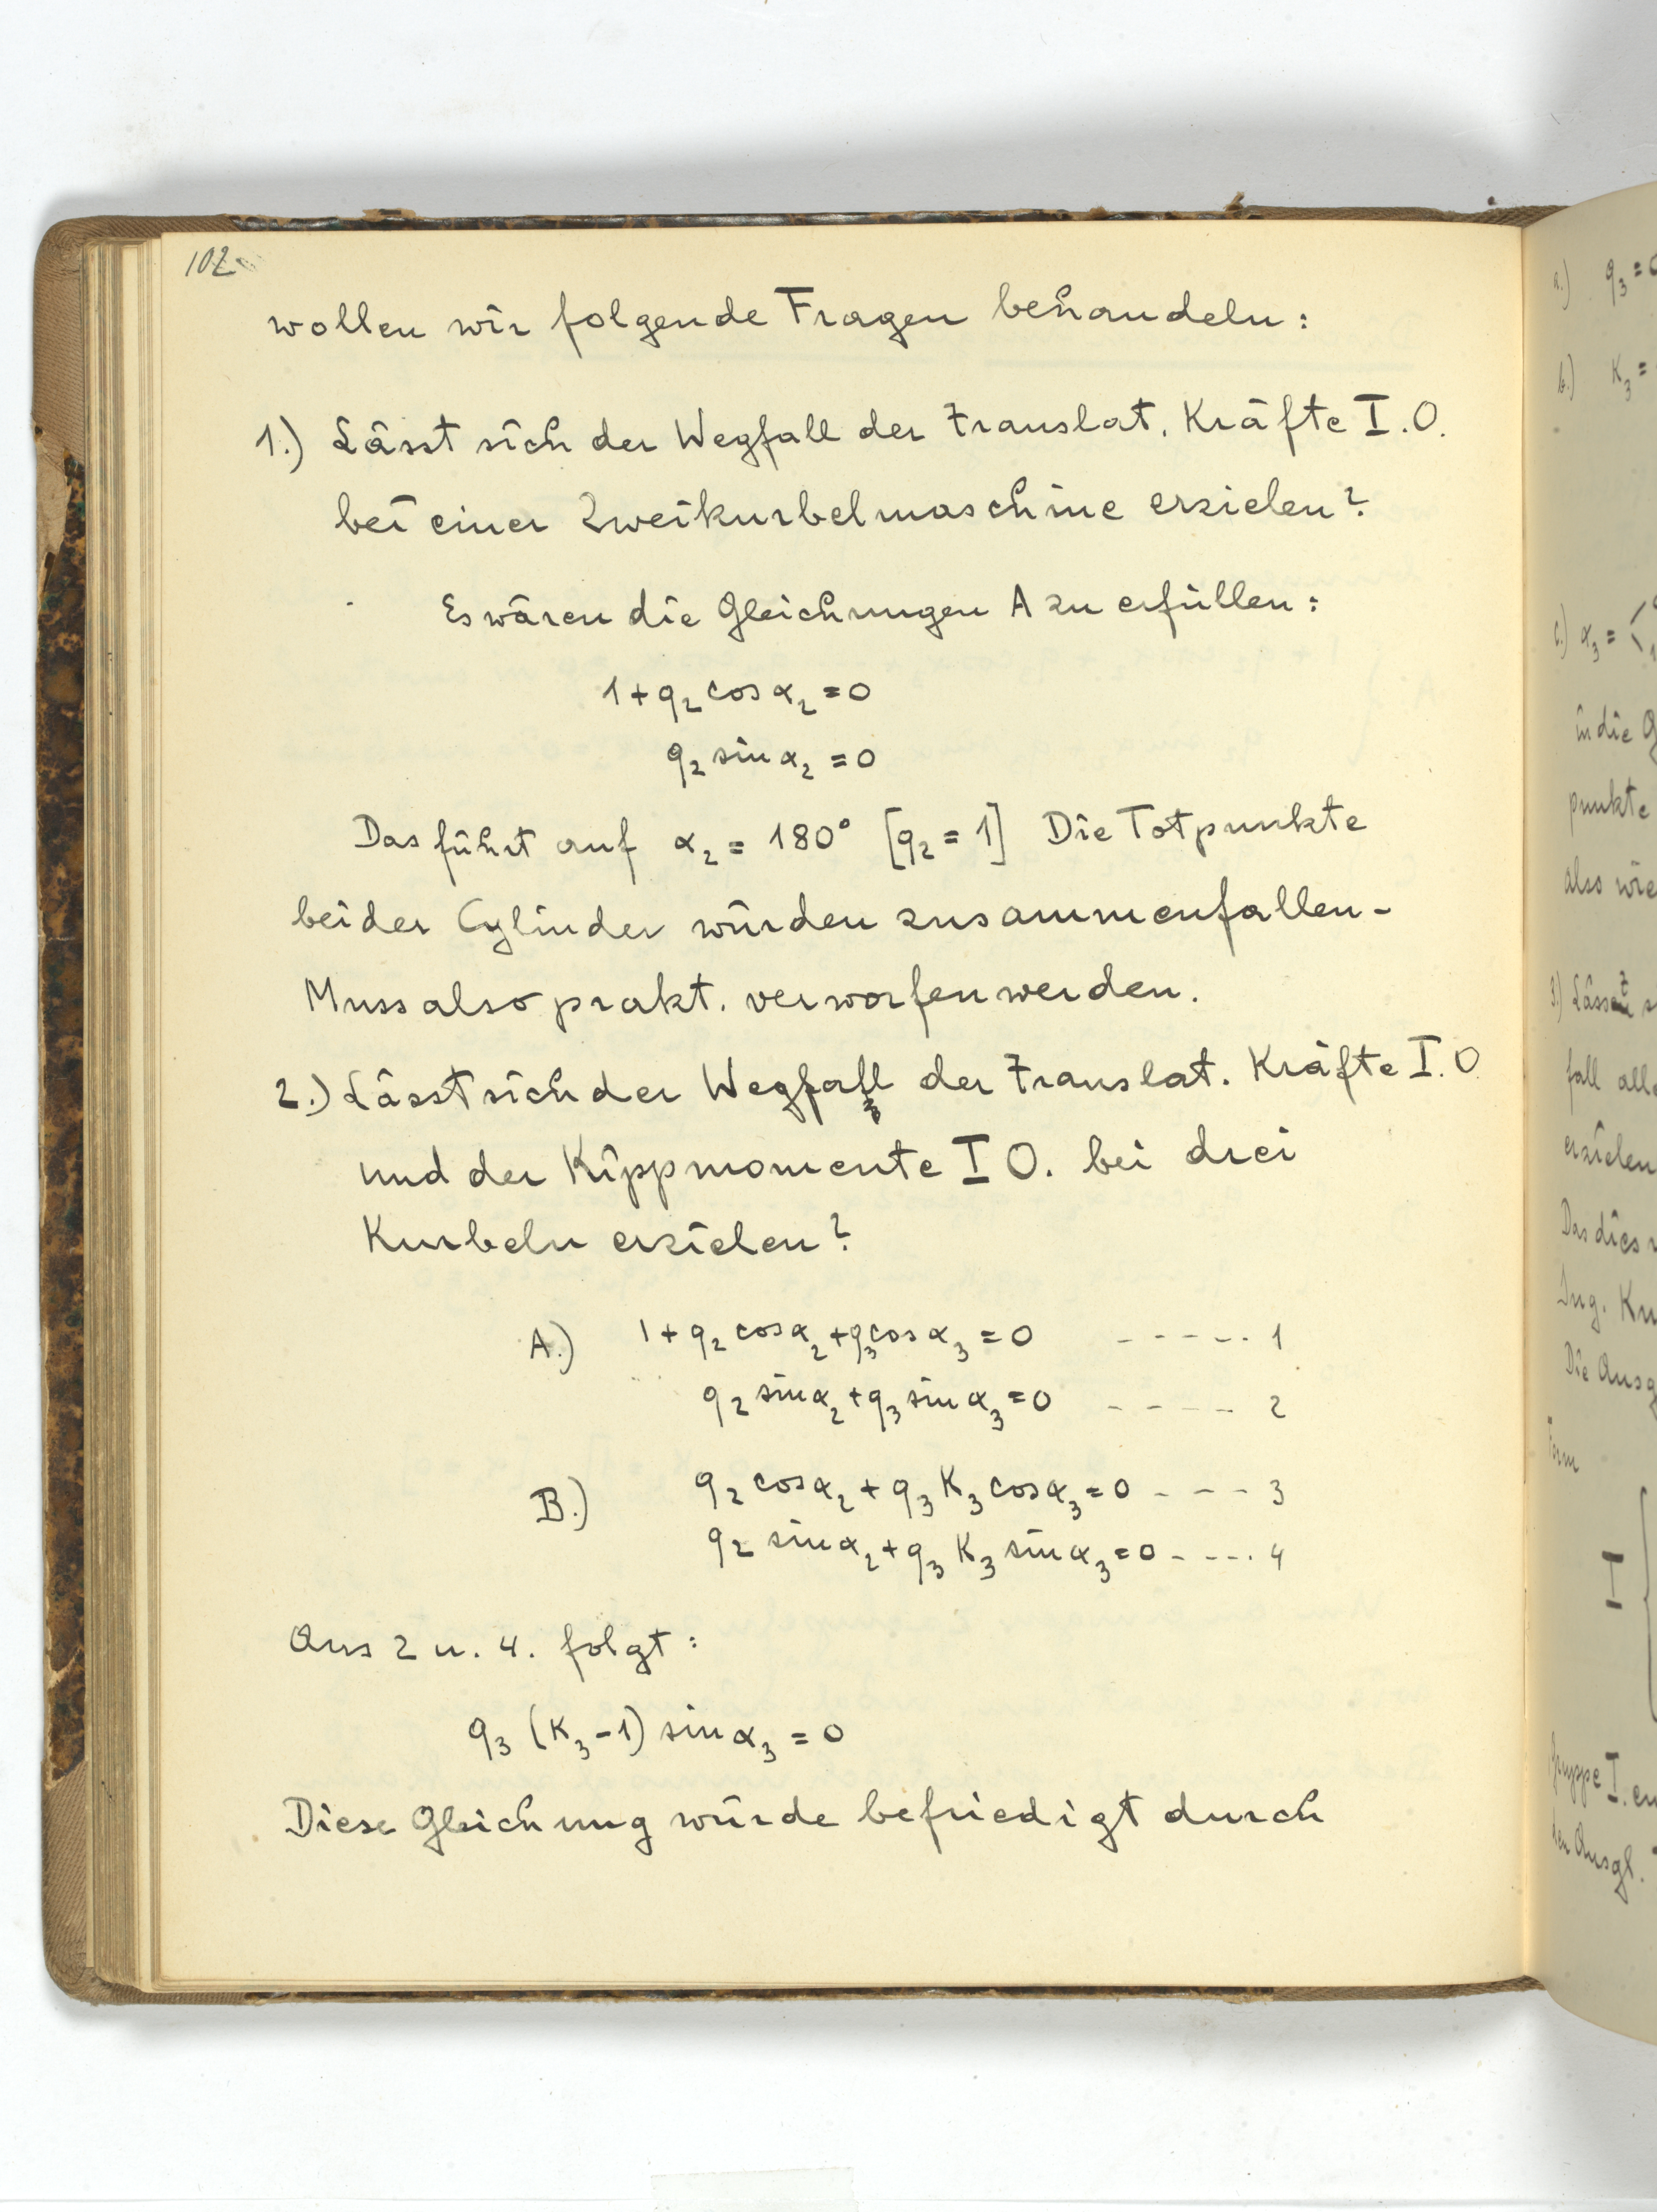 102
wollen wir folgende Fragen behandeln:
1.) Lässt sich der Wegfall der Translat. Kräfte I.O.
bei einer Zweikurbelmaschine erzielen?
Es wären die Gleichungen A zu erfüllen:
1 + q₂ cos α₂ = 0
q₂ sin α₂ = 0
Das führt auf α₂ = 180° [q₂ = 1] Die Totpunkte
beider Cylinder würden zusammenfallen -
Muss also prakt. verworfen werden.
2.) Lässt sich der Wegfall der Translat. Kräfte I.O
und der Kippmomente I O. bei drei
Kurbeln erzielen?
A.) 1 + q₂ cos α₂ + q₃ cos α₃ = 0 - - - - - 1
q₂ sin α₂ + q₃ sin α₃ = 0 - - - - - 2
B.) q₂ cos α₂ + q₃ K₃ cos α₃ = 0 - - - - 3
q₂ sin α₂ + q₃ K₃ sin α₃ = 0 - - - - . 4
Aus 2 u. 4. folgt:
q₃ (K₃ - 1) sin α₃ = 0
Diese Gleichung würde befriedigt durch
a.) q₃ =
b.) K₃ =
c.) α₃ =
in die
punkte
also wie
3.) Lässt
fall
erzielen
Das dies
Ing.
Die
I
Gruppe I.